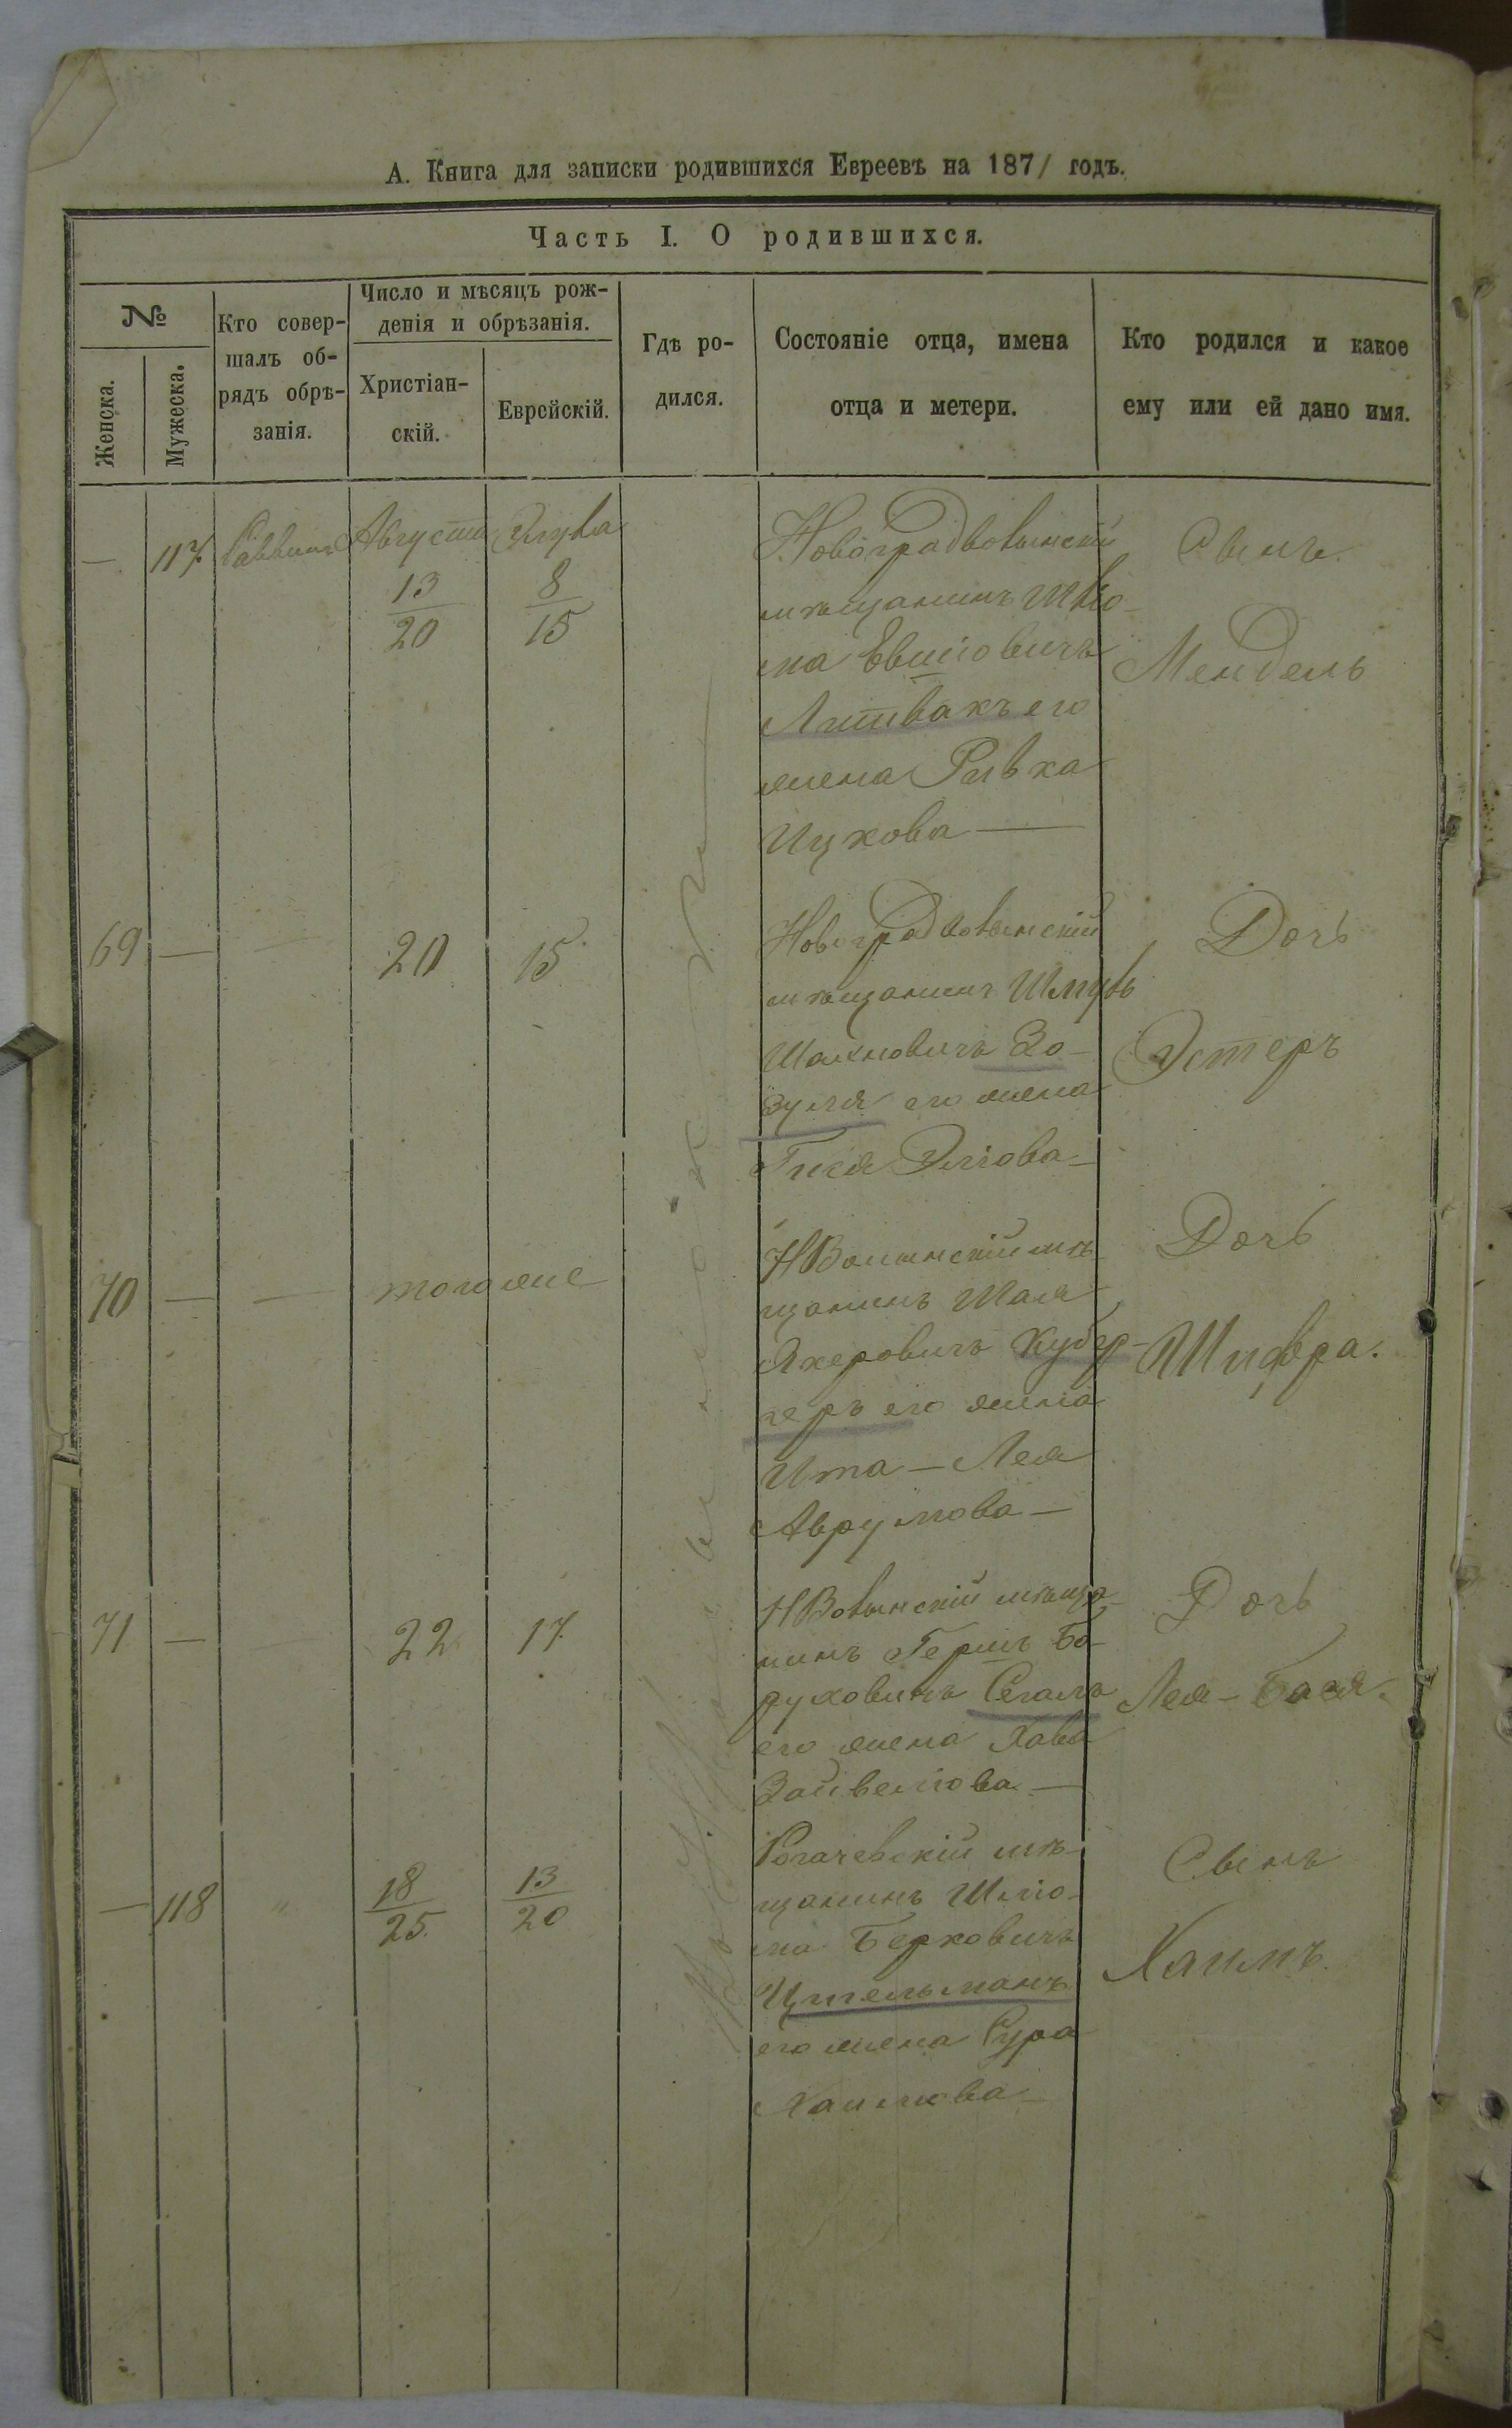 А. Книга для записки родившихся Евреевъ на 1871 годъ.
Часть I. О родившихся.
№
Женска.
Мужеска.
Кто совер-
шалъ об-
рядъ обрѣ-
занія.
Число и мѣсяцъ рож-
денія и обрѣзанія.
Христіан-
скій.
Еврейскій.
Гдѣ ро-
дился.
Состояніе отца, имена
отца и метери.
Кто родился и какое
ему или ей дано имя.
— 117 Раввинъ Августа Элула
13 8
20 15
Новоградволынскій
мѣщанинъ Шліо-
ма
Литвакъ его
жена Ривка
Ицкова —
Сынъ.
Мендель
69 — — 20 15
Новоградволынскій
мѣщанинъ Шмуль
Шахновичъ Зо-
зуля его жена
Гися Эліова —
Дочь
Эстеръ
70 — — тогоже
НВолынскій мѣ-
щанинъ Шая
его жена
Ита — Лея
Аврумова —
Дочь
Шифра.
71 — 22 17
НВолынскій мѣща-
нинъ Гершъ Бо-
руховичъ Сегалъ
его жена Хава
Зайвелiова —
Дочь
Лея - Бася.
— 118 " 18 13
25. 20
Рогачевскій мѣ-
щанинъ Шліо-
ма Берковичъ
его жена Сура
Хаимова —
Сынъ
Хаимъ.